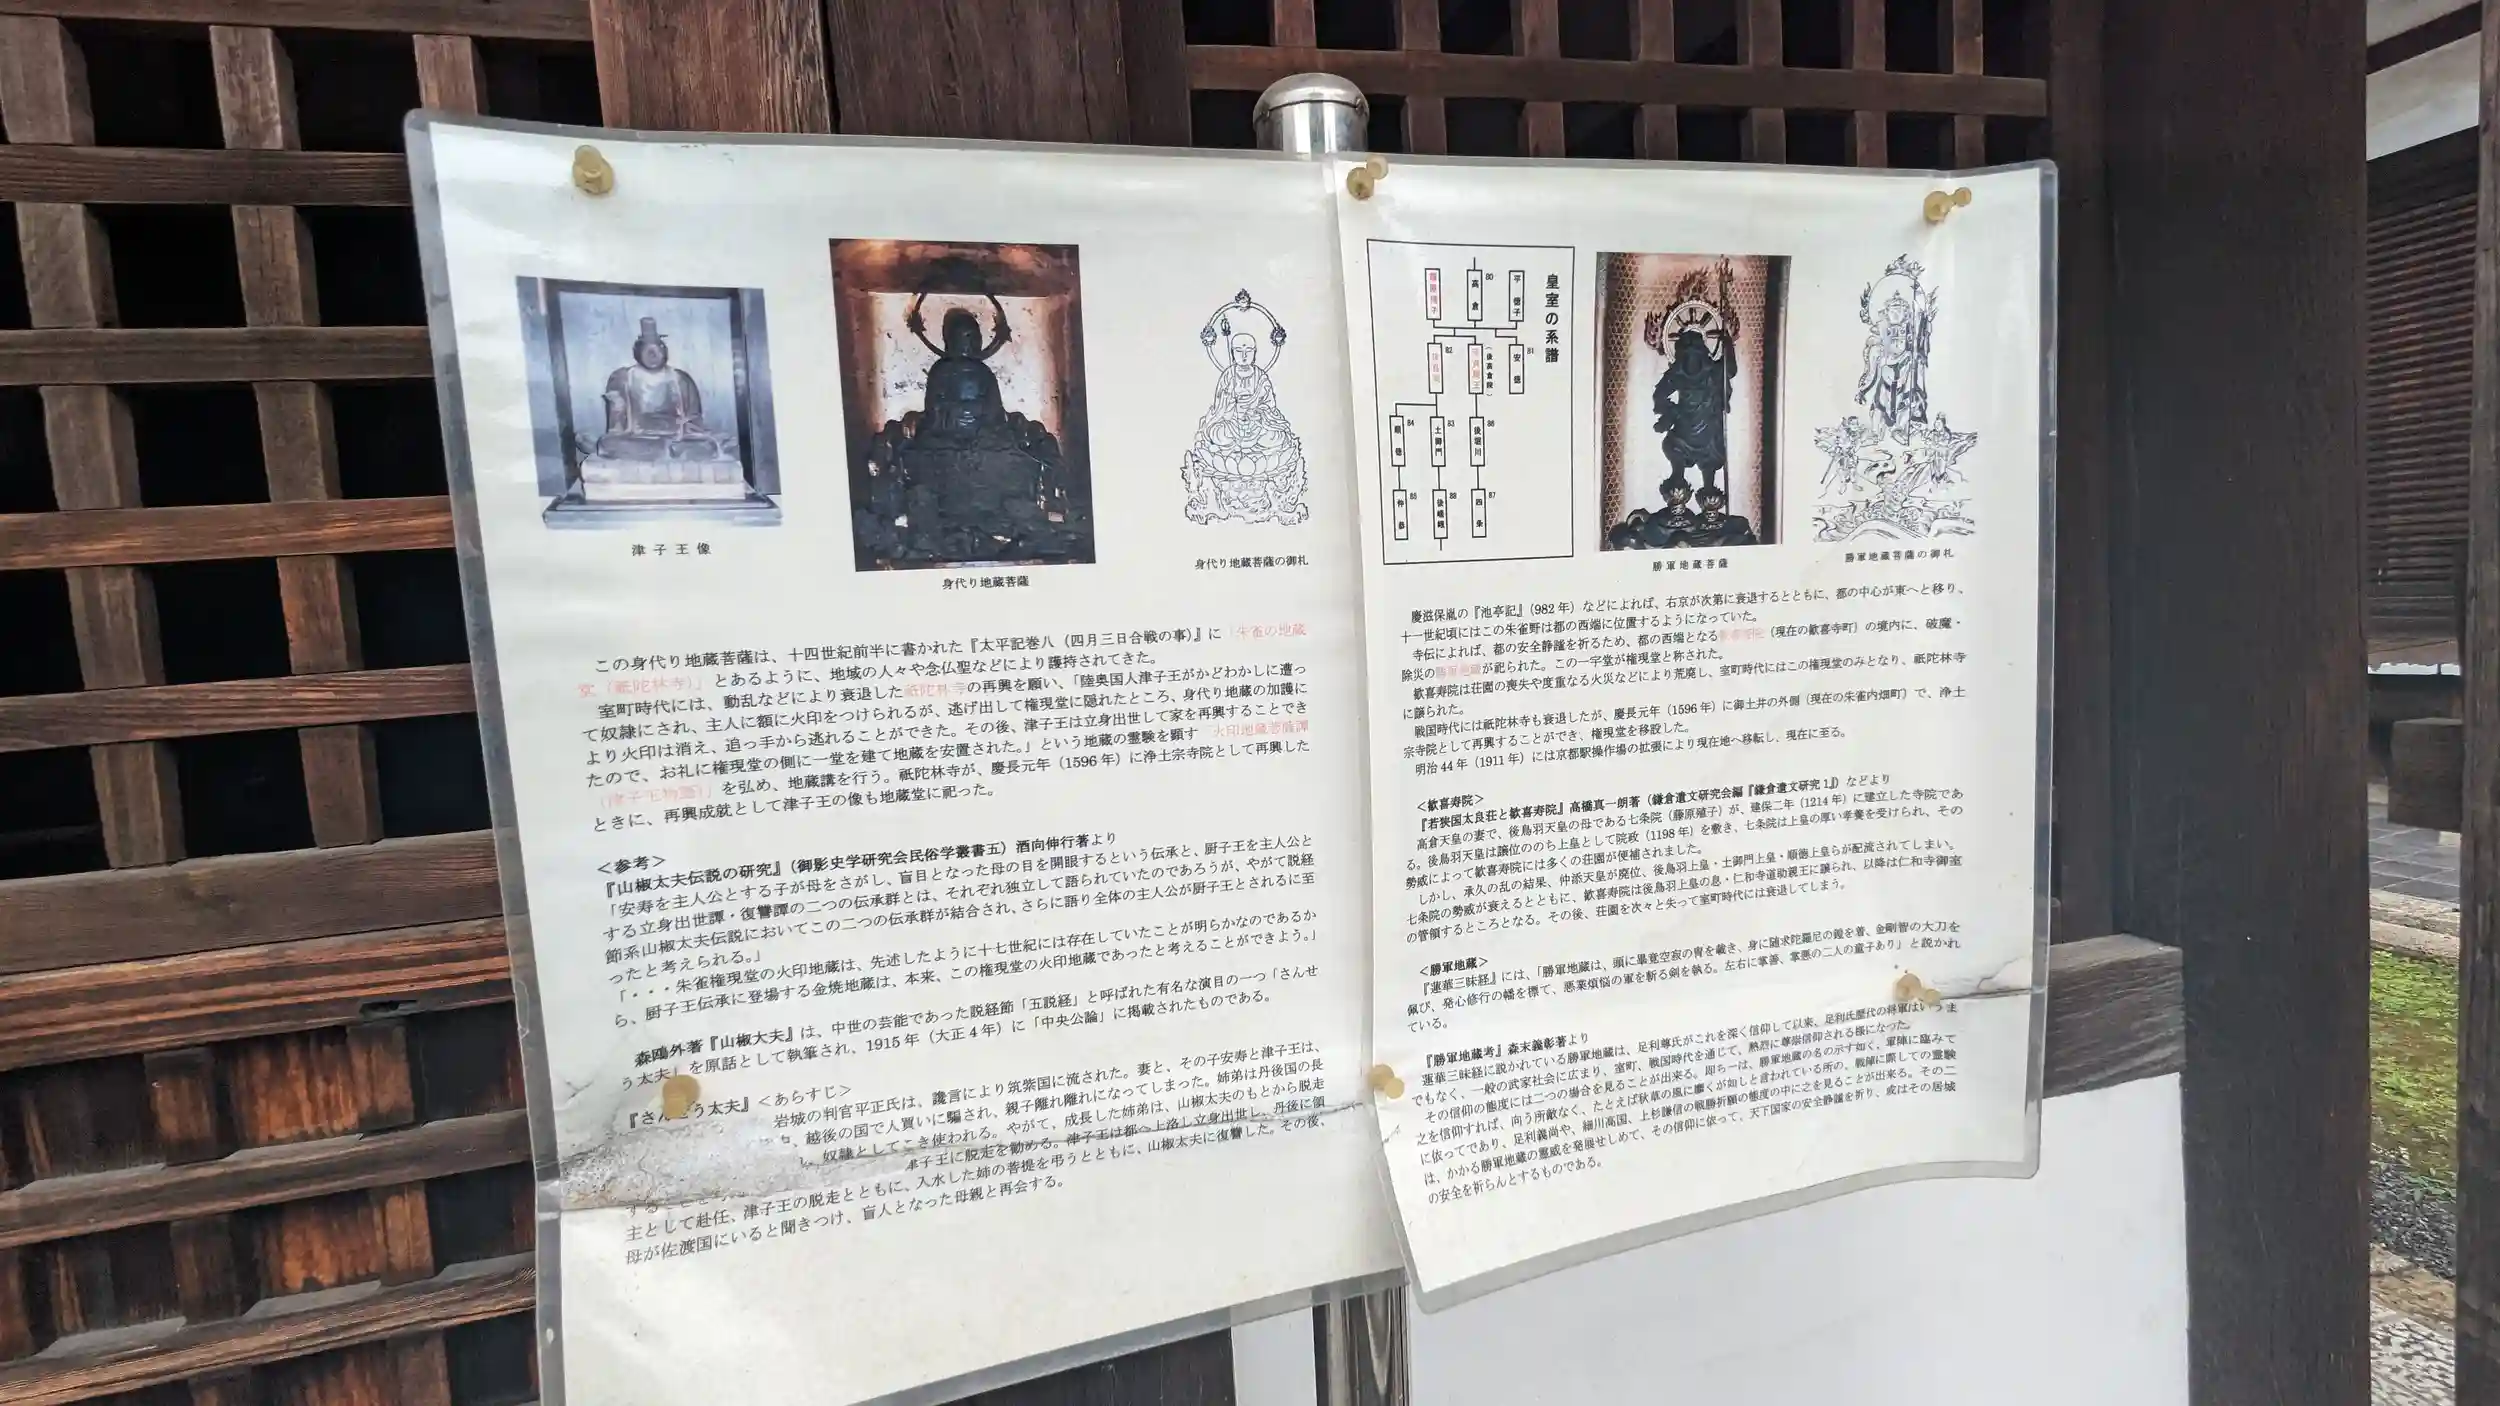 津子王像
身代り地蔵菩薩
身代り地蔵菩薩の御札
この身代り地蔵菩薩は、十四世紀前半に書かれた『太平記巻八（四月三日合戦の事）』に「朱雀の地蔵
堂（祇陀林寺）」とあるように、地域の人々や念仏聖などにより護持されてきた。
室町時代には、動乱などにより衰退した祇陀林寺の再興を願い、「陸奥国人津子王がかどわかしに遭っ
て奴隷にされ、主人に額に火印をつけられるが、逃げ出して権現堂に隠れたところ、身代り地蔵の加護に
より火印は消え、追っ手から逃れることができた。その後、津子王は立身出世して家を再興することでき
たので、お礼に権現堂の側に一堂を建て地蔵を安置された。」という地蔵の霊験を顕す「火印地蔵菩薩譚
（津子王物語）」を弘め、地蔵講を行う。祇陀林寺が、慶長元年（1596年）に浄土宗寺院として再興した
ときに、再興成就として津子王の像も地蔵堂に祀った。
＜参考＞
『山椒太夫伝説の研究』（御影史学研究会民俗学叢書五）酒向伸行著より
「安寿を主人公とする子が母をさがし、盲目となった母の目を開眼するという伝承と、厨子王を主人公と
する立身出世譚・復讐譚の二つの伝承群とは、それぞれ独立して語られていたのであろうが、やがて説経
節系山椒太夫伝説においてこの二つの伝承群が結合され、さらに語り全体の主人公が厨子王とされるに至
ったと考えられる。」
「・・・朱雀権現堂の火印地蔵は、先述したように十七世紀には存在していたことが明らかなのであるか
ら、厨子王伝承に登場する金焼地蔵は、本来、この権現堂の火印地蔵であったと考えることができよう。」
森鴎外著『山椒大夫』は、中世の芸能であった説経節「五説経」と呼ばれた有名な演目の一つ「さんせ
う太夫」を原話として執筆され、1915年（大正4年）に「中央公論」に掲載されたものである。
『さんせう太夫』＜あらすじ＞
岩城の判官平正氏は、讒言により筑紫国に流された。妻と、その子安寿と津子王は、
越後の国で人買いに騙され、親子離れ離れになってしまった。姉弟は丹後国の長
、奴隷としてこき使われる。やがて、成長した姉弟は、山椒太夫のもとから脱走
する 津子王に脱走を勧める。津子王は都へ上洛し立身出世し、丹後に領
主として赴任、津子王の脱走とともに、入水した姉の菩提を弔うとともに、山椒太夫に復讐した。その後、
母が佐渡国にいると聞きつけ、盲人となった母親と再会する。
皇室の系譜
平徳子
80 高倉
藤原殖子
81 安徳
守貞親王
（後高倉院）
82 後鳥羽
86 後堀川
83 土御門
84 順徳
87 四条
88 後嵯峨
85 仲恭
勝軍地蔵菩薩
勝軍地蔵菩薩の御札
慶滋保胤の『池亭記』（982年）などによれば、右京が次第に衰退するとともに、都の中心が東へと移り、
十一世紀頃にはこの朱雀野は都の西端に位置するようになっていた。
寺伝によれば、都の安全静謐を祈るため、都の西端となる歓喜寿院（現在の歓喜寺町）の境内に、破魔・
除災の勝軍地蔵が祀られた。この一宇堂が権現堂と称された。
歓喜寿院は荘園の喪失や度重なる火災などにより荒廃し、室町時代にはこの権現堂のみとなり、祇陀林寺
に譲られた。
戦国時代には祇陀林寺も衰退したが、慶長元年（1596年）に御土井の外側（現在の朱雀内畑町）で、浄土
宗寺院として再興することができ、権現堂を移設した。
明治44年（1911年）には京都駅操作場の拡張により現在地へ移転し、現在に至る。
＜歓喜寿院＞
『若狭国太良荘と歓喜寿院』高橋真一朗著（鎌倉遺文研究会編『鎌倉遺文研究1』）などより
高倉天皇の妻で、後鳥羽天皇の母である七条院（藤原殖子）が、建保二年（1214年）に建立した寺院であ
る。後鳥羽天皇は譲位ののち上皇として院政（1198年）を敷き、七条院は上皇の厚い孝養を受けられ、その
勢威によって歓喜寿院には多くの荘園が便補されました。
しかし、承久の乱の結果、仲添天皇が廃位、後鳥羽上皇・土御門上皇・順徳上皇らが配流されてしまい。
七条院の勢威が衰えるとともに、歓喜寿院は後鳥羽上皇の息・仁和寺道助親王に譲られ、以降は仁和寺御室
の管領するところとなる。その後、荘園を次々と失って室町時代には衰退してしまう。
＜勝軍地蔵＞
『蓮華三昧経』には、「勝軍地蔵は、頭に畢竟空寂の冑を戴き、身に随求陀羅尼の鎧を着、金剛智の大刀を
佩び、発心修行の幡を標て、悪業煩悩の軍を斬る剣を執る。左右に掌善、掌悪の二人の童子あり」と説かれ
ている。
『勝軍地蔵考』森末義彰著より
蓮華三昧経に説かれている勝軍地蔵は、足利尊氏がこれを深く信仰して以来、足利氏歴代の将軍はいうま
でもなく、一般の武家社会に広まり、室町、戦国時代を通じて、熱烈に尊崇信仰される様になった。
その信仰の態度には二つの場合を見ることが出来る。即ち一は、勝軍地蔵の名の示す如く、軍陣に臨みて
之を信仰すれば、向う所敵なく、たとえば秋草の風に靡くが如しと言われている所の、戦陣に際しての霊験
に依ってであり、足利義尚や、細川高国、上杉謙信の戦勝祈願の態度の中に之を見ることが出来る。その二
は、かかる勝軍地蔵の霊威を発展せしめて、その信仰に依って、天下国家の安全静謐を祈り、或はその居城
の安全を祈らんとするものである。